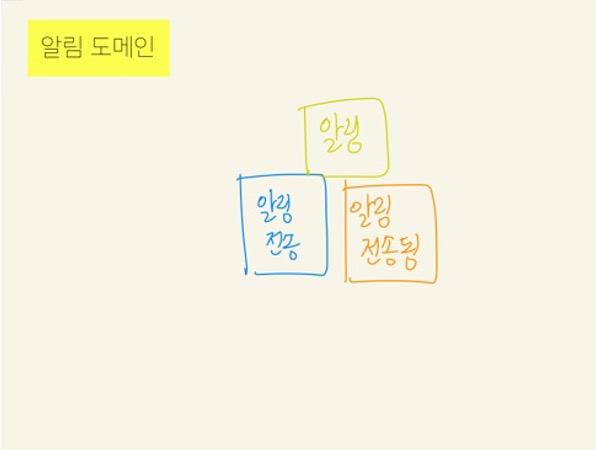 알림 도메인
알림
알림
전송
알림
전송됨